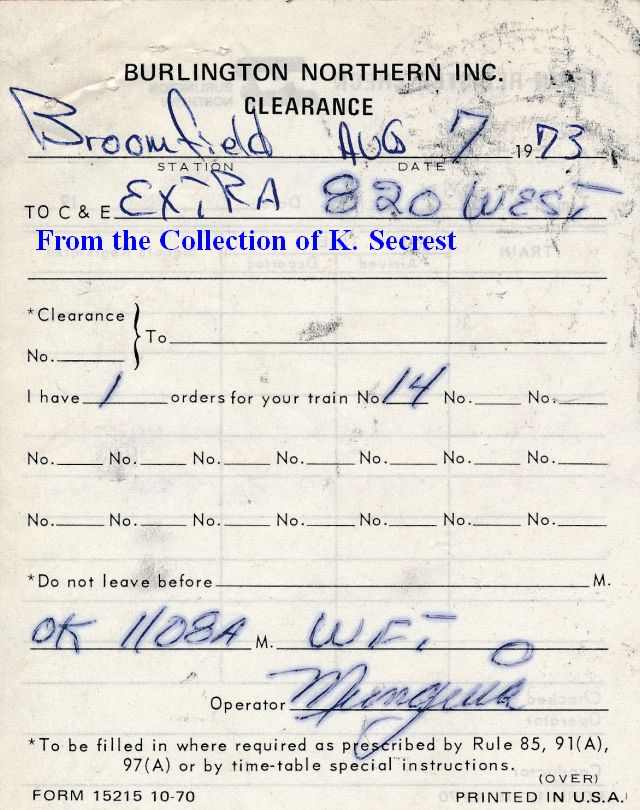 BURLINGTON NORTHERN INC.
CLEARANCE
Broomfield AUG 7 1973
STATION DATE
TO C & E EXTRA 820 WEST
From the Collection of K. Secrest
*Clearance
No. To
I have 1 orders for your train No. 14 No. No.
No. No. No. No. No. No. No.
No. No. No. No. No. No. No.
*Do not leave before M.
OK 1108A M. WFT
Operator
*To be filled in where required as prescribed by Rule 85, 91(A),
97(A) or by time-table special instructions.
(OVER)
FORM 15215 10-70 PRINTED IN U.S.A.